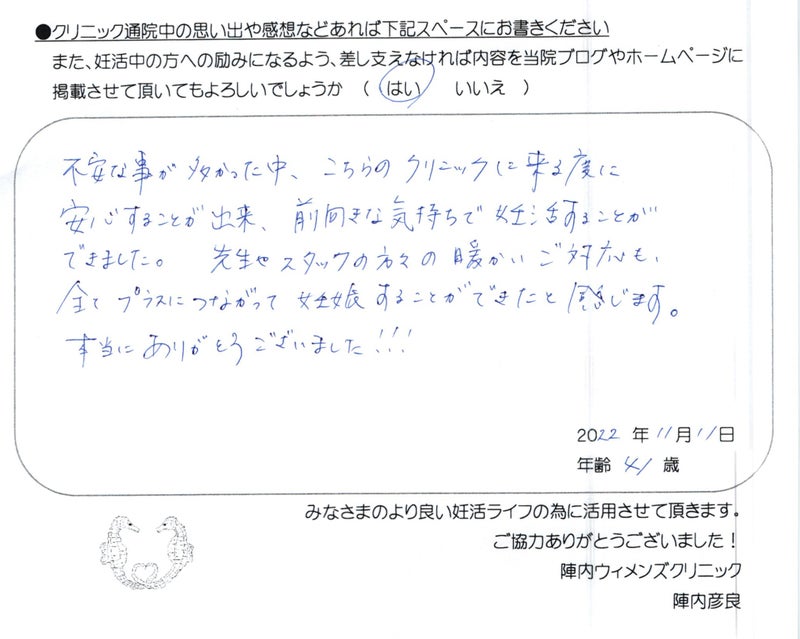 ●クリニック通院中の思い出や感想などあれば下記スペースにお書きください
また、妊活中の方への励みになるよう、差し支えなければ内容を当院ブログやホームページに
掲載させて頂いてもよろしいでしょうか （ はい　いいえ ）
不安な事が多かった中、こちらのクリニックに来る度に
安心することが出来、前向きな気持ちで妊活することが
できました。 先生やスタッフの方々の暖かいご対応も、
全てプラスにつながって妊娠することができたと感じます。
本当にありがとうございました!!!
2022 年 11月 11日
年齢 41 歳
みなさまのより良い妊活ライフの為に活用させて頂きます。
ご協力ありがとうございました！
陣内ウィメンズクリニック
陣内彦良